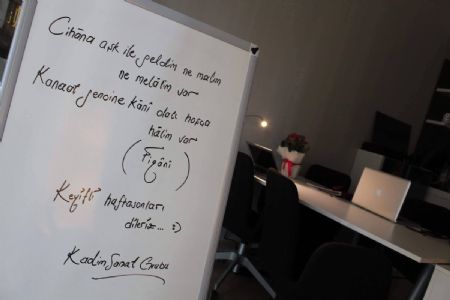 Cihâna aşk ile geldim ne malım
ne melâlim var
Kanaat gencine kâni olalı hoşça
hâlim var
(Figâni)
Keyifli haftasonları
dileriz... :)
Kadim Sanat Grubu